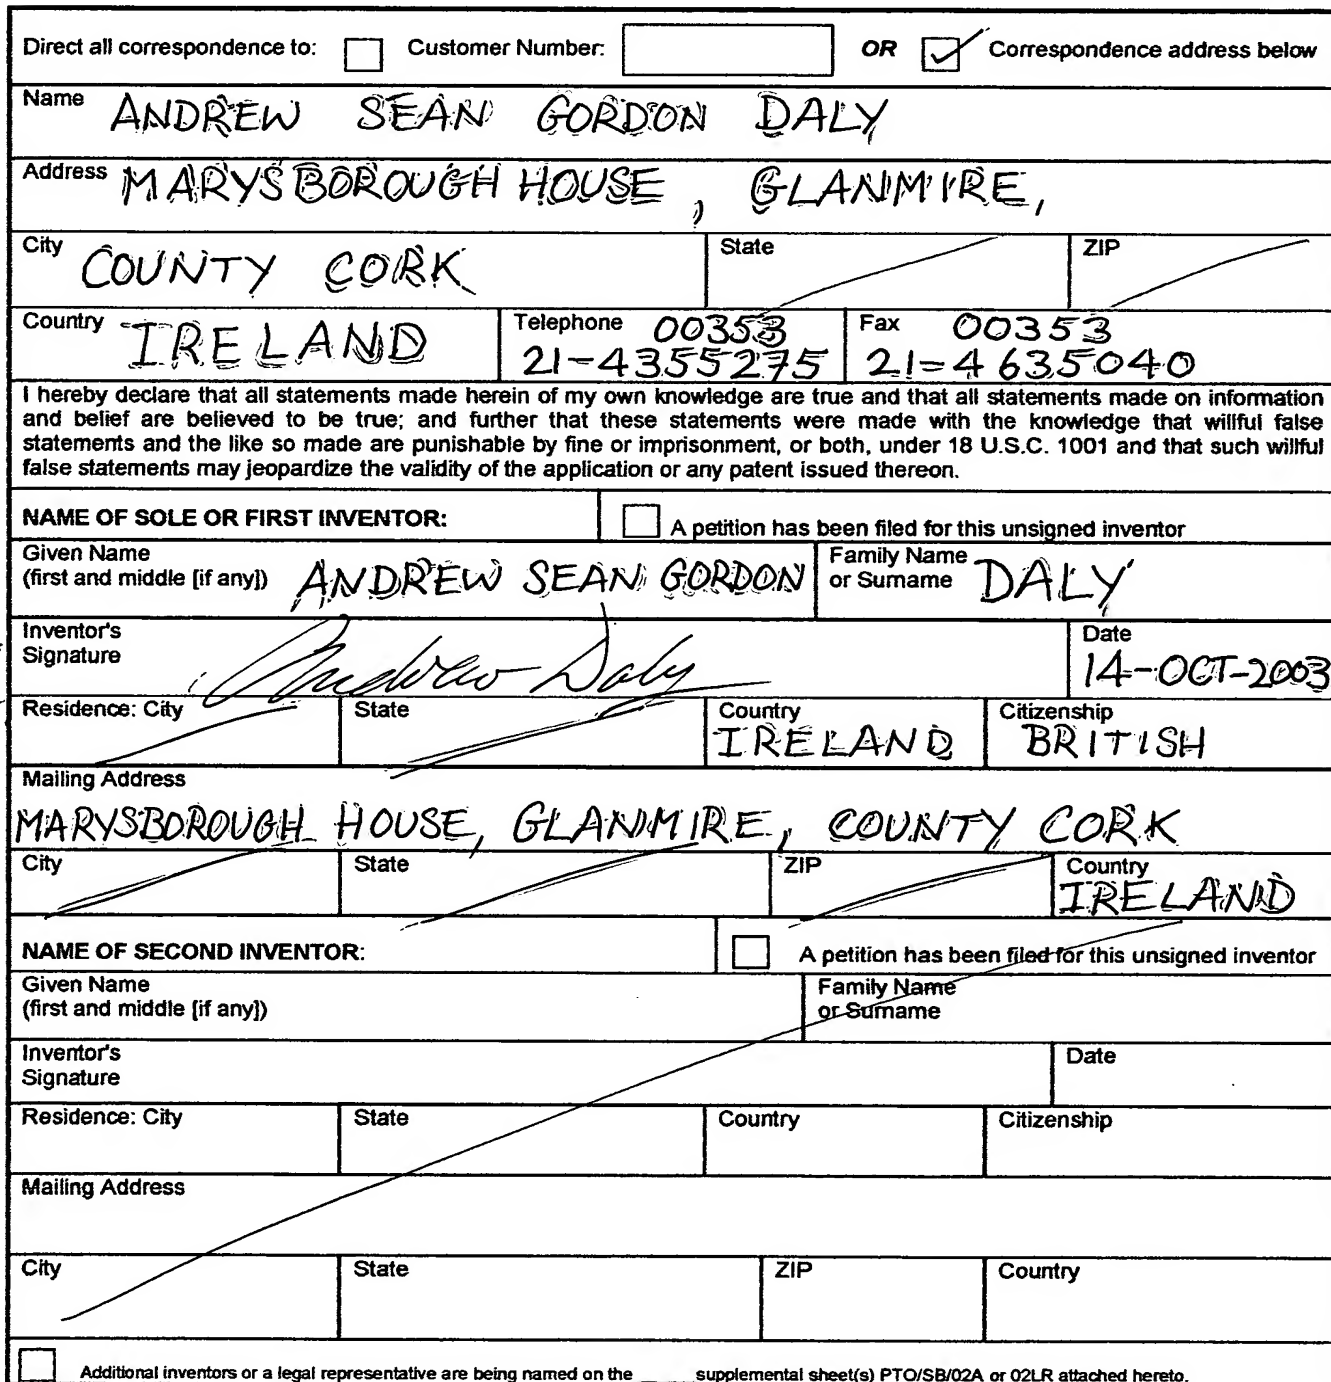 Direct all correspondence to: Customer Number: OR Correspondence address below
Name ANDREW SEAN GORDON DALY
Address MARYSBOROUGH HOUSE, GLANMIRE,
City COUNTY CORK State ZIP
Country IRELAND Telephone 00353 Fax 00353
21-4355275 21-4635040
I hereby declare that all statements made herein of my own knowledge are true and that all statements made on information
and belief are believed to be true; and further that these statements were made with the knowledge that willful false
statements and the like so made are punishable by fine or imprisonment, or both, under 18 U.S.C. 1001 and that such willful
false statements may jeopardize the validity of the application or any patent issued thereon.
NAME OF SOLE OR FIRST INVENTOR: A petition has been filed for this unsigned inventor
Given Name Family Name
(first and middle [if any]) ANDREW SEAN GORDON or Surname DALY
Inventor's Date
Signature Andrew Daly 14-OCT-2003
Residence: City State Country Citizenship
IRELAND BRITISH
Mailing Address
MARYSBOROUGH HOUSE, GLANMIRE, COUNTY CORK
City State ZIP Country
IRELAND
NAME OF SECOND INVENTOR: A petition has been filed for this unsigned inventor
Given Name Family Name
(first and middle [if any]) or Surname
Inventor's Date
Signature
Residence: City State Country Citizenship
Mailing Address
City State ZIP Country
Additional inventors or a legal representative are being named on the _____ supplemental sheet(s) PTO/SB/02A or 02LR attached hereto.